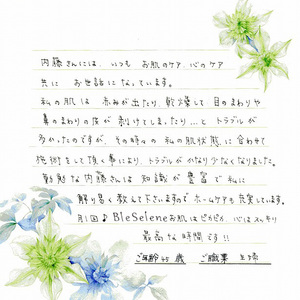 内藤さんには、いつも お肌のケア、心のケア
共に お世話になっています。
私の肌は 赤みが出たり、乾燥して 目のまわりや
鼻のまわりの皮が 剥けてしまったり…と トラブルが
多かったのですが、その時々の 私の肌状態に合わせて
施術をして頂く事により、トラブルが かなり少なくなりました。
勤勉な内藤さんは 知識が 豊富で 私に
解り易く 教えて下さいますので ホームケアも 充実しています。
月1回♪ BleSelene お肌はピカピカ、心はスッキリ
最高な時間です!!
ご年齢 45 歳 ご職業 主婦